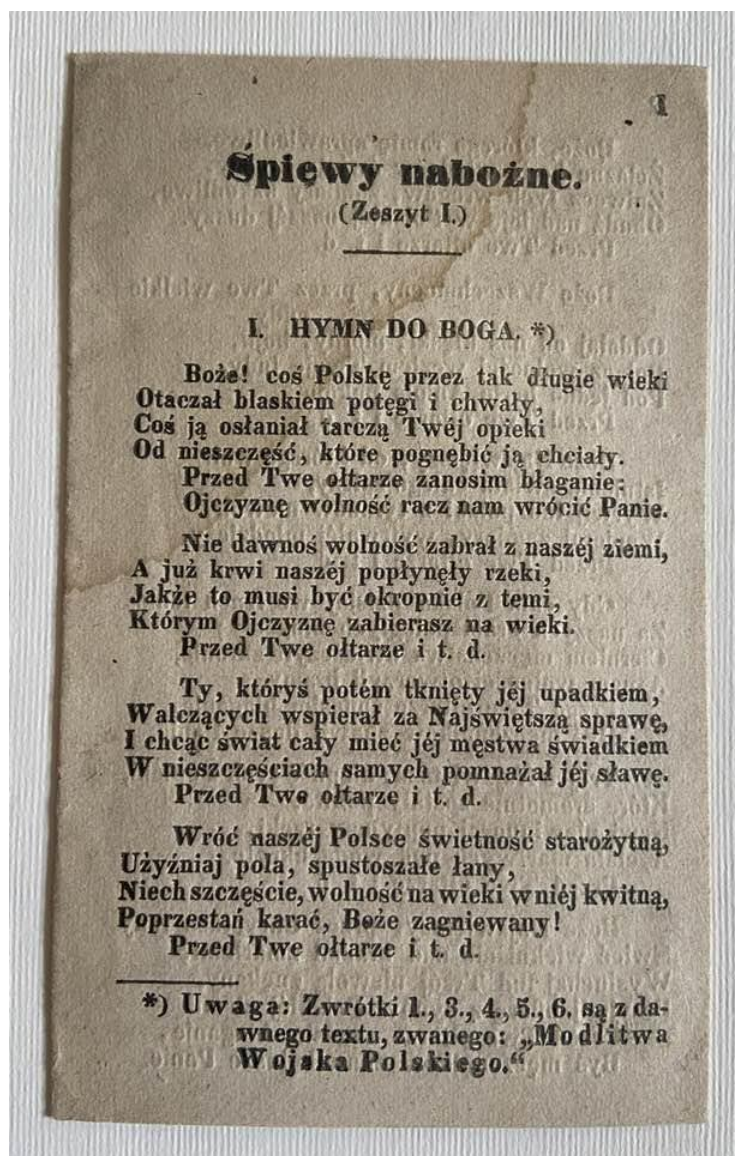 1
Śpiewy nabożne.
(Zeszyt I.)
I. HYMN DO BOGA. *)
Boże! coś Polskę przez tak długie wieki
Otaczał blaskiem potęgi i chwały,
Coś ją osłaniał tarczą Twéj opieki
Od nieszczęść, które pognębić ją chciały.
Przed Twe ołtarze zanosim błaganie:
Ojczyznę wolność racz nam wrócić Panie.
Nie dawnoś wolność zabrał z naszéj ziemi,
A już krwi naszéj popłynęły rzeki,
Jakże to musi być okropnie z temi,
Którym Ojczyznę zabierasz na wieki.
Przed Twe ołtarze i t. d.
Ty, któryś potém tknięty jéj upadkiem,
Walczących wspierał za Najświętszą sprawę,
I chcąc świat cały mieć jéj męstwa świadkiem
W nieszczęściach samych pomnażał jéj sławę.
Przed Twe ołtarze i t. d.
Wróć naszéj Polsce świetność starożytną,
Użyźniaj pola, spustoszałe łany,
Niech szczęście, wolność na wieki w niéj kwitną,
Poprzestań karać, Boże zagniewany!
Przed Twe ołtarze i t. d.
*) Uwaga: Zwrótki 1., 3., 4., 5., 6. są z da-
wnego textu, zwanego: „Modlitwa
Wojska Polskiego.“